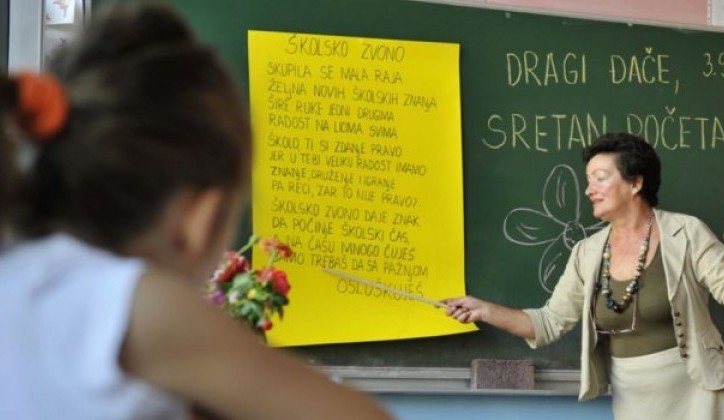 ŠKOLSKO ZVONO
SKUPILA SE MALA RAJA
ŽELJNA NOVIH ŠKOLSKIH ZNANJA
ŠIRE RUKE JEDNI DRUGIMA
RADOST NA LICIMA SVIMA
ŠKOLO, TI SI ZDANJE PRAVO
JER U TEBI VELIKU RADOST IMAMO
ZNANJE, DRUŽENJE I IGRANJE
PA RECI, ZAR TO NIJE PRAVO?
ŠKOLSKO ZVONO DAJE ZNAK
DA POČINJE ŠKOLSKI ČAS,
A NA ČASU MNOGO ČUJEŠ
SAMO TREBAŠ DA SA PAŽNJOM
OSLUŠKUJEŠ
DRAGI ĐAČE, 3.
SRETAN POČETA